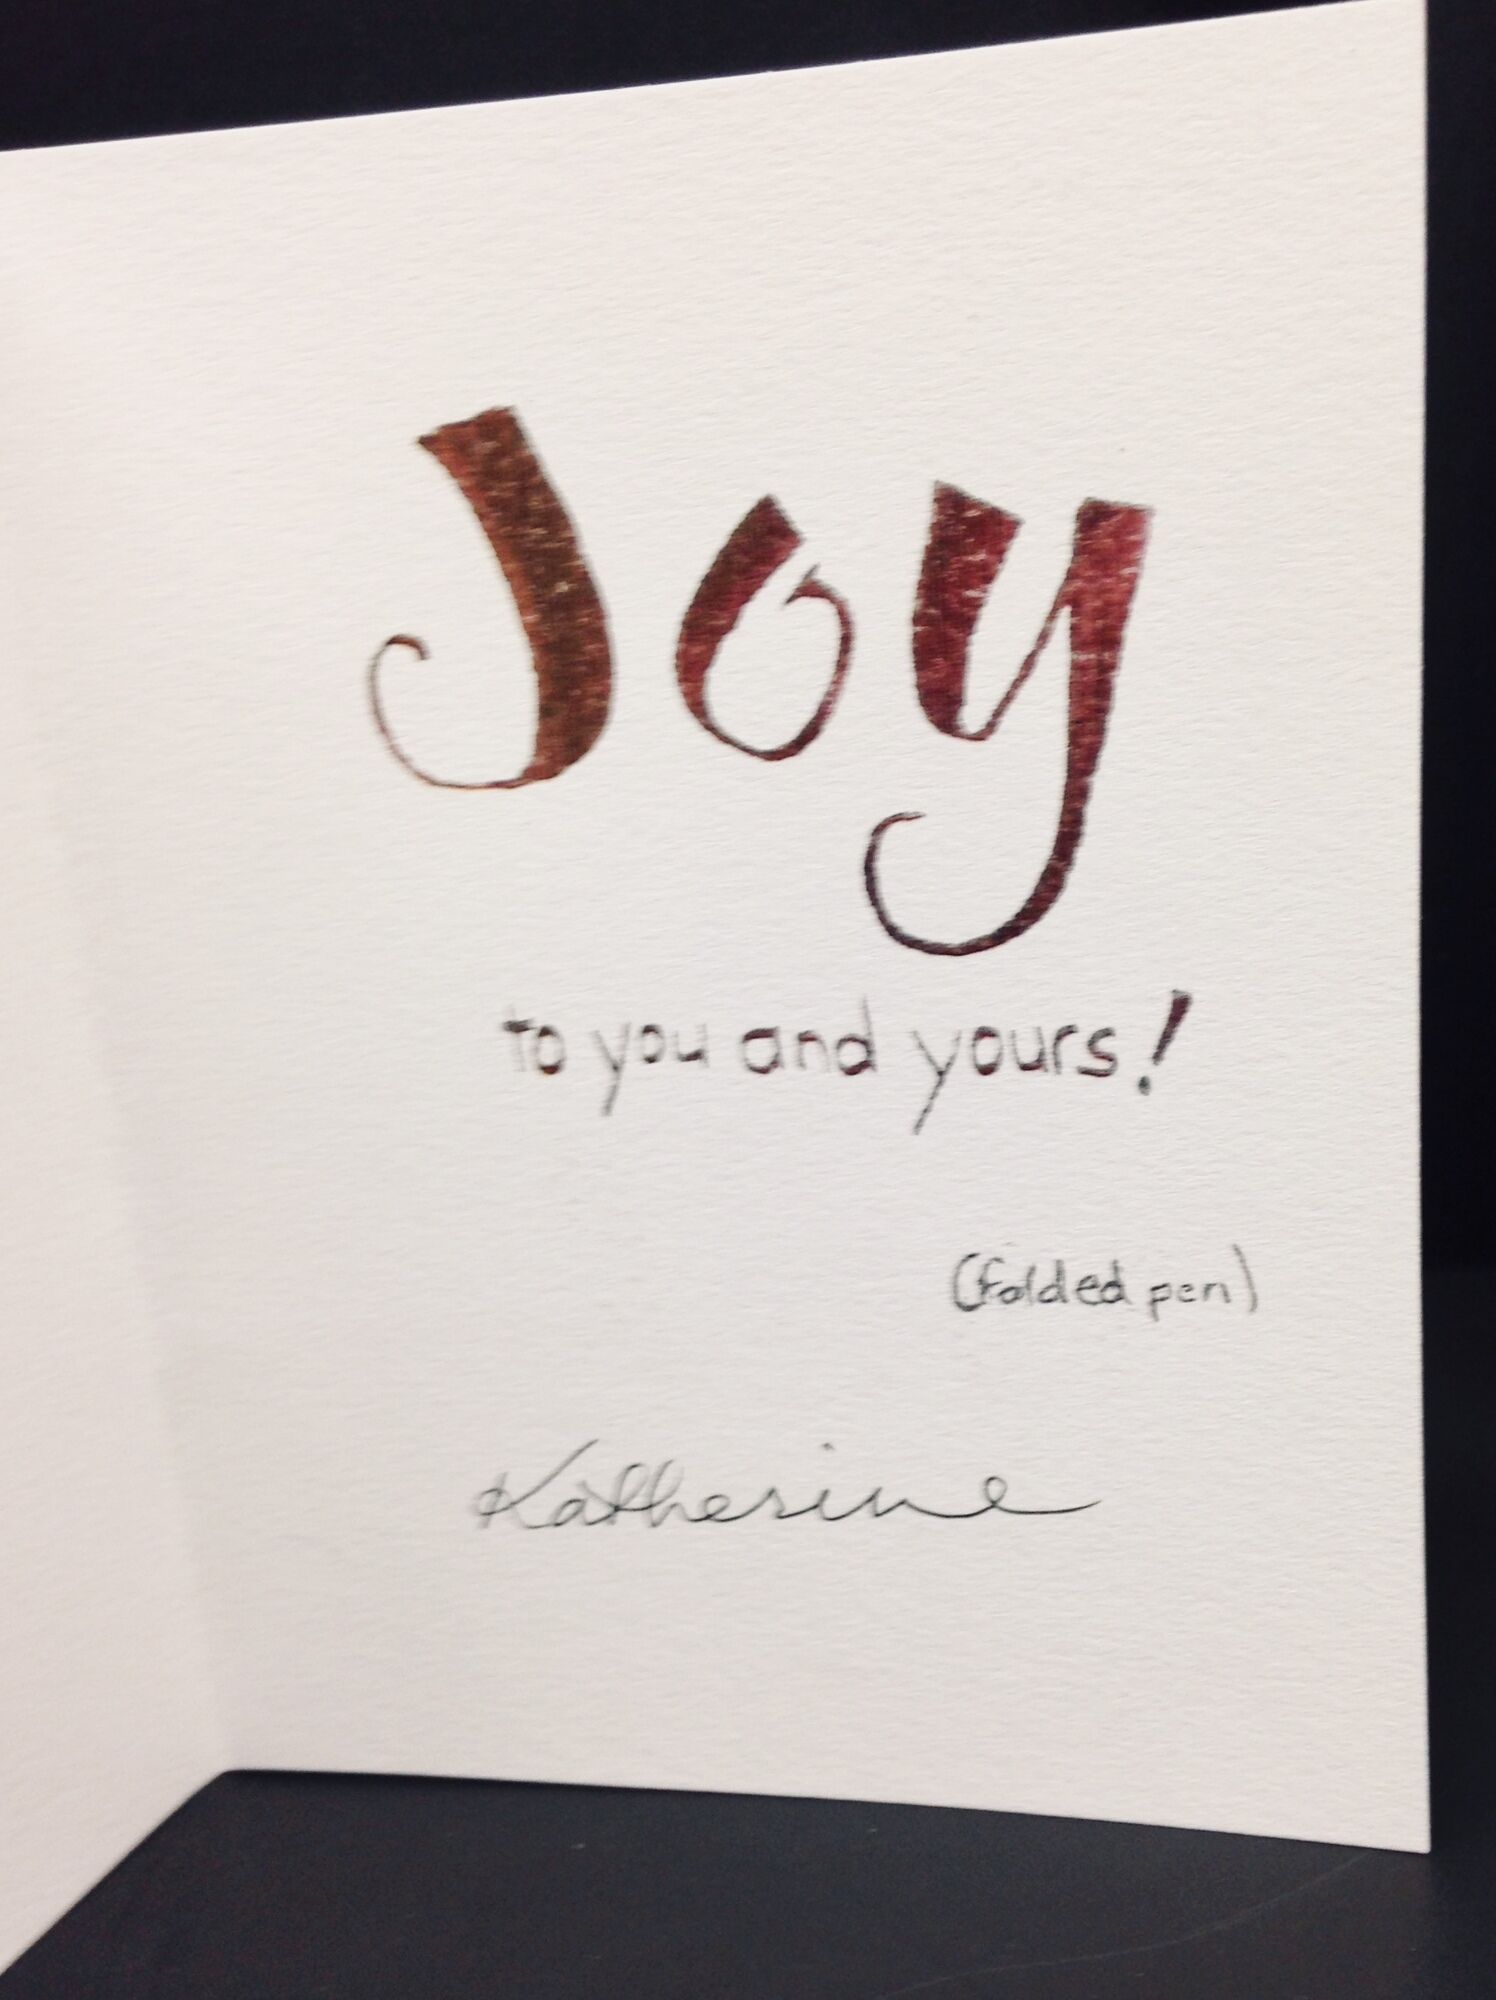 Joy
to you and yours!
(folded pen)
Katherine